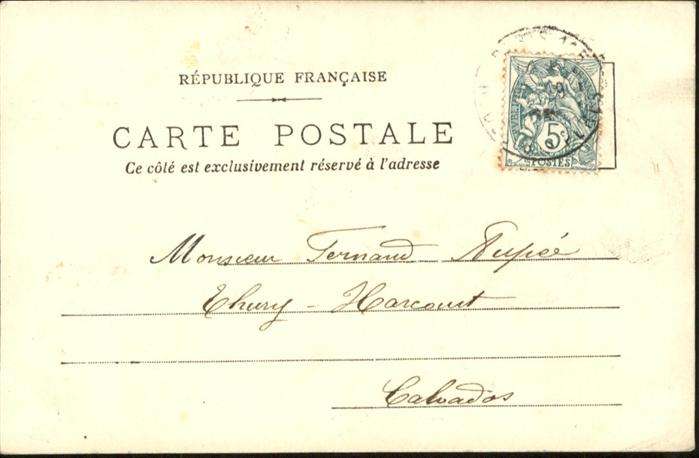 RÉPUBLIQUE FRANÇAISE
CARTE POSTALE
Ce côté est exclusivement réservé à l'adresse
5c
POSTES
Monsieur Fernand
Thury-Harcourt
Calvados